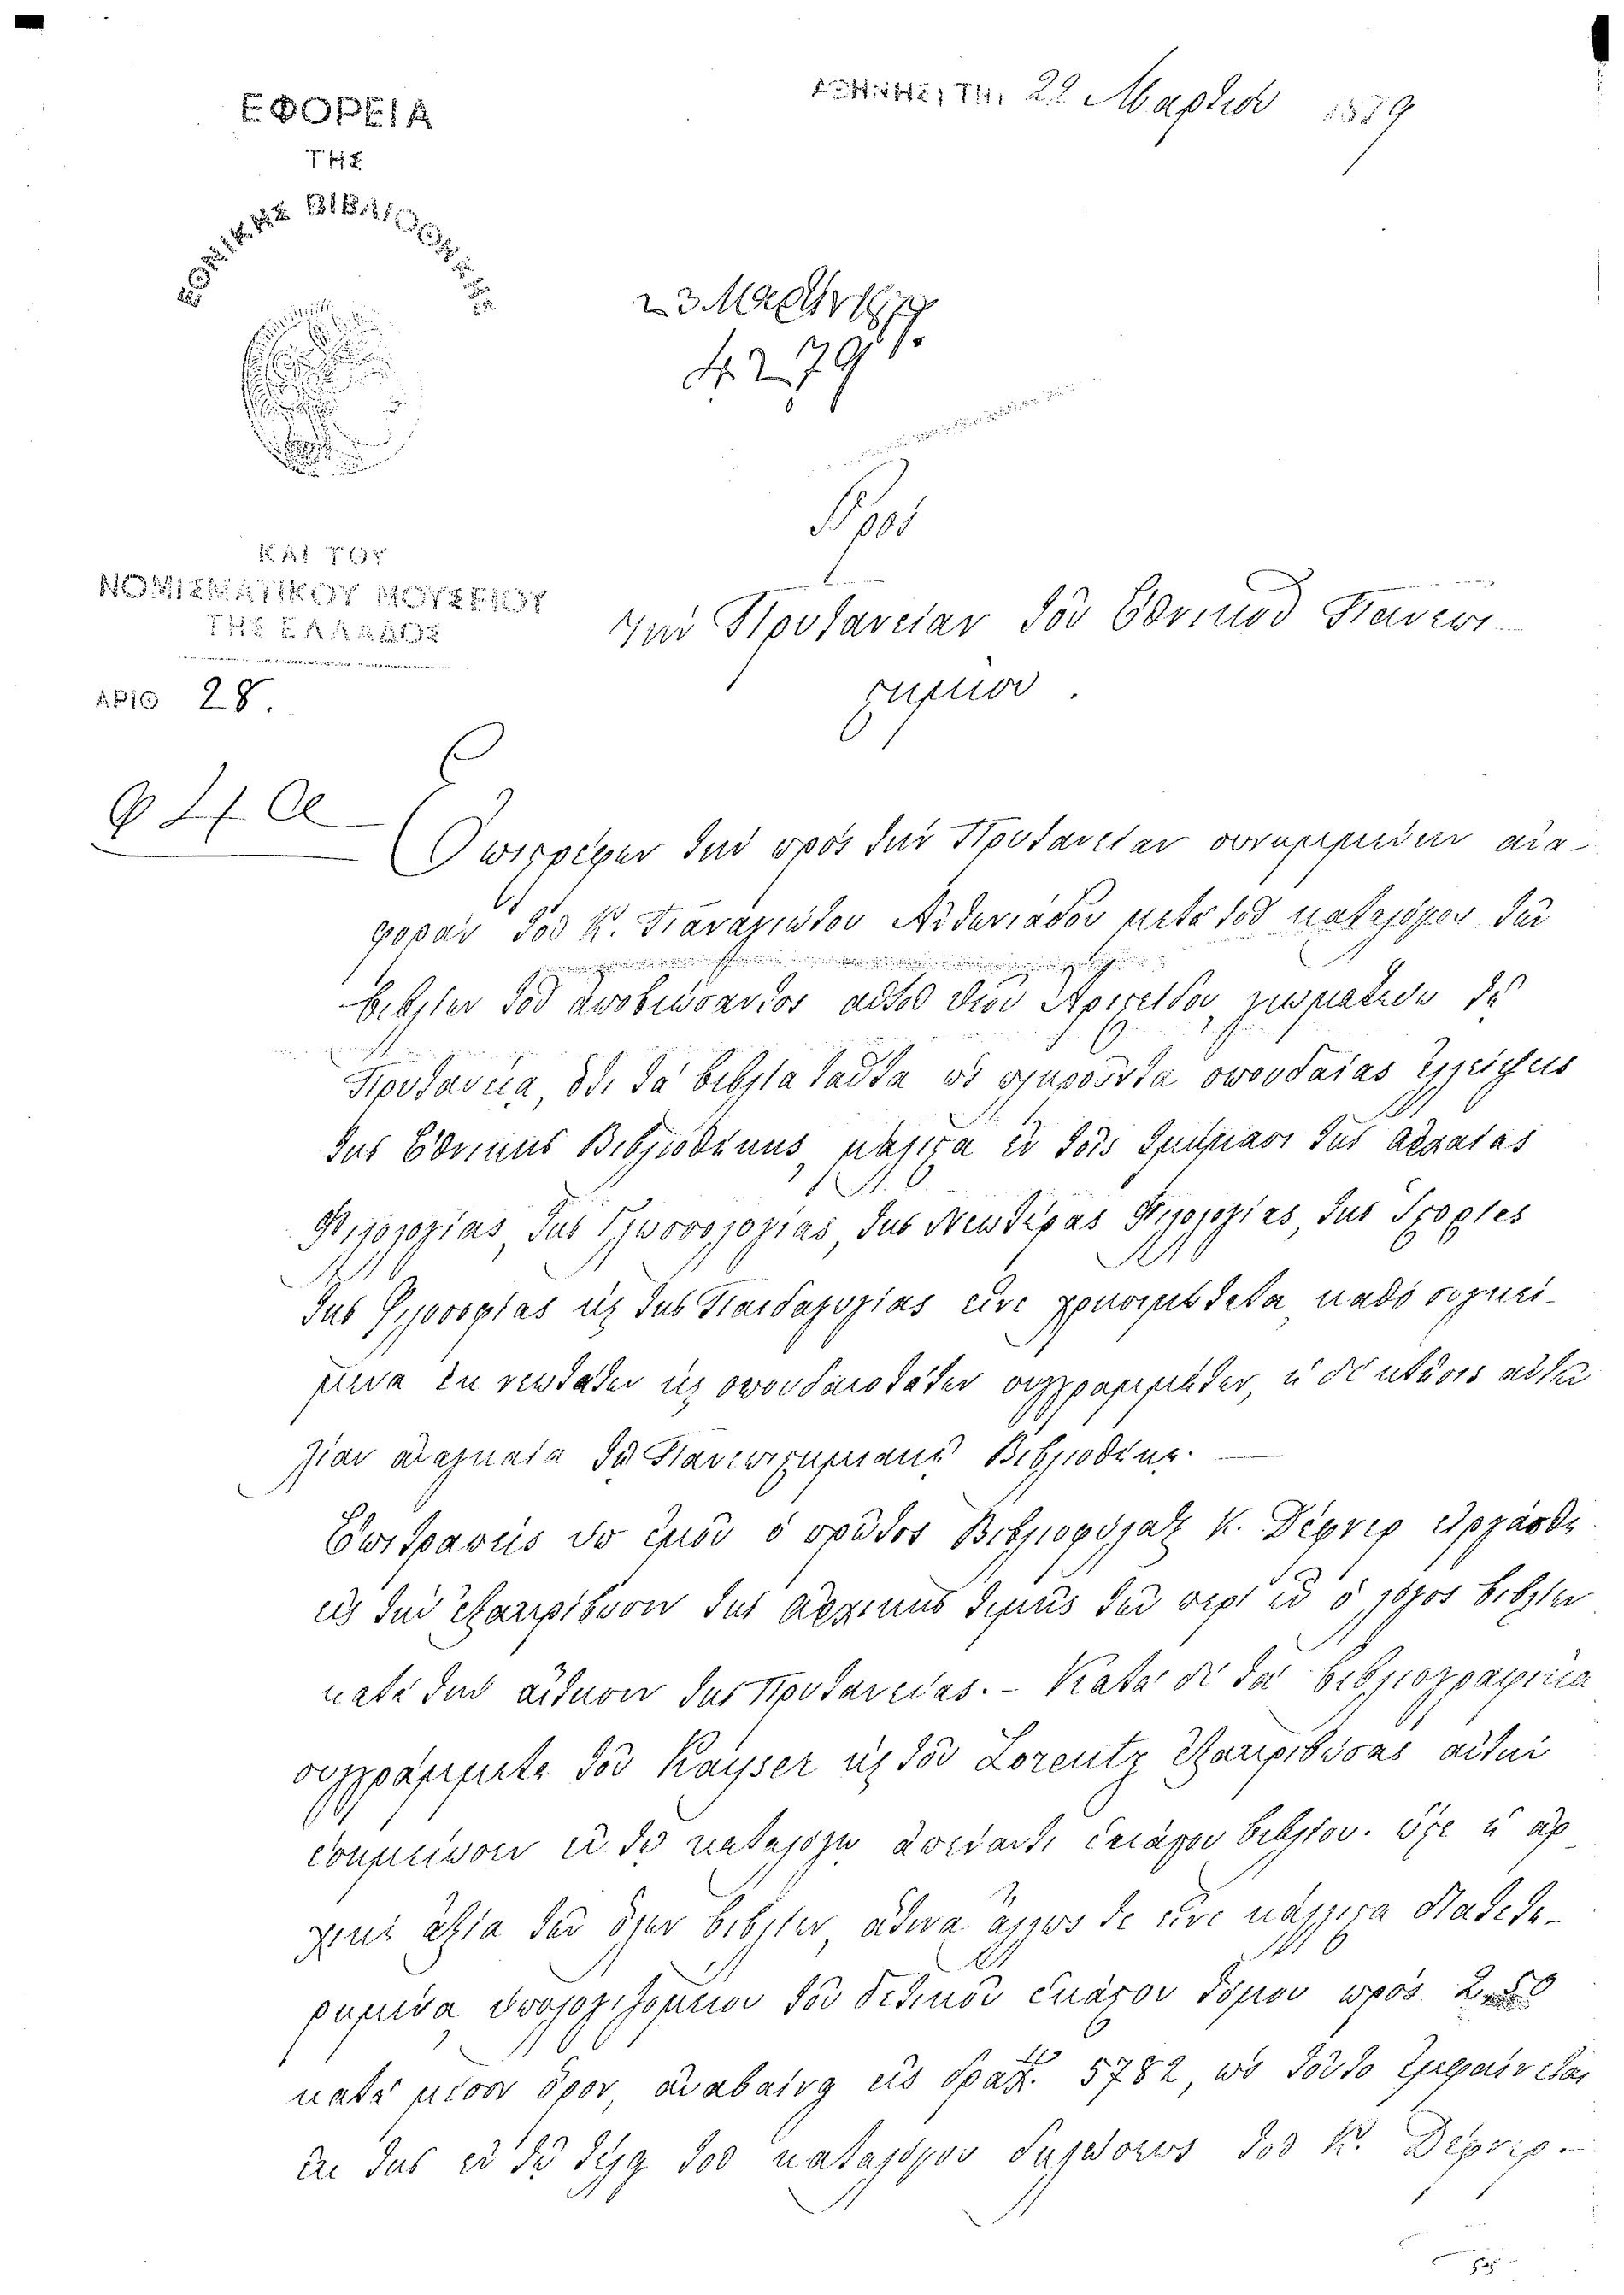 ΕΦΟΡΕΙΑ
ΤΗΣ
ΕΘΝΙΚΗΣ ΒΙΒΛΙΟΘΗΚΗΣ
ΚΑΙ ΤΟΥ
ΝΟΜΙΣΜΑΤΙΚΟΥ ΜΟΥΣΕΙΟΥ
ΤΗΣ ΕΛΛΑΔΟΣ
ΑΡΙΘ 28.
22 Μαρτίου 1879
23 1879
4279
Πρὸς
τὴν Πρυτανείαν τοῦ Ἐθνικοῦ Πανεπι-
στημίου.
Ἐπιστρέφων τὴν πρὸς τὴν Πρυτανείαν συνημμένην ἀνα-
φορὰν τοῦ Κ. μετὰ τοῦ καταλόγου τῶν
βιβλίων τοῦ ἀποβιώσαντος αὐτοῦ υἱοῦ γνωματεύω τῇ
Πρυτανείᾳ, ὅτι τὰ βιβλία ταῦτα ὡς πληροῦντα σπουδαίας ἐλλείψεις
τῆς Ἐθνικῆς Βιβλιοθήκης, μάλιστα ἐν τοῖς τμήμασι τῆς ἀρχαίας
Φιλολογίας, τῆς Γλωσσολογίας, τῆς Νεωτέρας Φιλολογίας, τῆς Ἱστορίας
τῆς Φιλοσοφίας καὶ τῆς Παιδαγωγίας εἶνε χρησιμώτατα, καθὸ συγκεί-
μενα ἐκ νεωτάτων καὶ σπουδαιοτάτων συγγραμμάτων, ἡ δὲ κτῆσις αὐτῶν
λίαν ἀναγκαία τῇ Πανεπιστημιακῇ Βιβλιοθήκῃ.
Ἐπιτραπεὶς ὑπ' ἐμοῦ ὁ πρῶτος Βιβλιοφύλαξ Κ. εἰργάσθη
εἰς τὴν ἐξακρίβωσιν τῆς ἀρχικῆς τιμῆς τῶν περὶ ὧν ὁ λόγος βιβλίων
κατὰ τὴν αἴτησιν τῆς Πρυτανείας. - Κατὰ δὲ τὰ βιβλιογραφικὰ
συγγράμματα τοῦ Kayser καὶ τοῦ Lorentz ἐξακριβώσας αὐτὴν
ἐσημείωσεν ἐν τῷ καταλόγῳ ἀπέναντι ἑκάστου βιβλίου. Ὥστε ἡ ἀρ-
χικὴ ἀξία τῶν ὅλων βιβλίων, ἅτινα ἄλλως τε εἶνε κάλλιστα διατετη-
ρημένα, ὑπολογιζομένου τοῦ δετικοῦ ἑκάστου τόμου πρὸς 2.50
κατὰ μέσον ὅρον, ἀναβαίνει εἰς δραχ. 5782, ὡς τοῦτο ἐμφαίνεται
ἐκ τῆς ἐν τῷ τέλει τοῦ καταλόγου δηλώσεως τοῦ Κ.